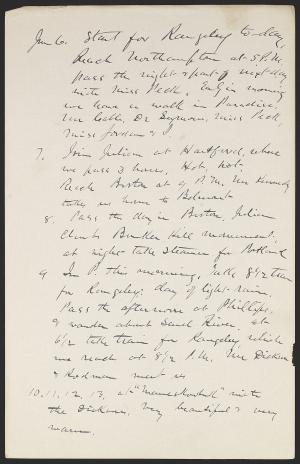 Jun 6. Start for Rangeley to-day,
Reach Northampton at 5 P.M.
pass the night & part of next day
with Miss Peck. Early in morning
we have a walk in Paradise.
Mr Cable, Dr Seymour, Miss Peck,
Miss Jordan & I.
7. Join Julian at Hartford, where
we pass 3 hours, Hot, hot.
Reach Boston at 9 P.M. Mr Kennedy
take us home to Belmont
8. Pass the day in Boston, Julian
climbs Bunker Hill monument,
at night take steamer for Portland
9 In P. this morning, Take 8 1/2 train
for Rangeley; day of light rain.
Pass the afternoon at Phillips,
& wander about Sandy River. at
6 1/2 take train for Rangeley which
we reach at 8 1/2 P.M. Mr Dickson
& Rodman meet us
10. 11. 12. 13. at " " with
the Dicksons. Very beautiful & very
warm.